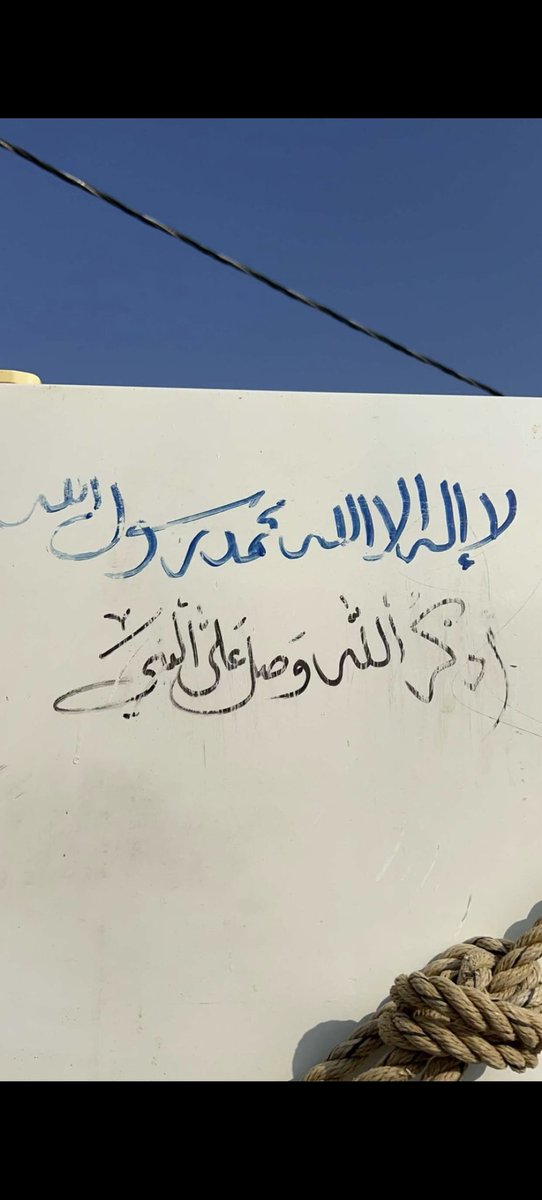 لا إله الا الله محمد رسول الله
أذكر الله وَصل عَلىَ النبي